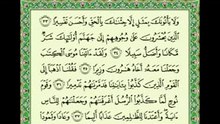 وَلَا يَأْتُونَكَ بِمَثَلٍ إِلَّا جِئْنَاكَ بِالْحَقِّ وَأَحْسَنَ تَفْسِيرًا ٣٣
الَّذِينَ يُحْشَرُونَ عَلَىٰ وُجُوهِهِمْ إِلَىٰ جَهَنَّمَ أُولَٰئِكَ شَرٌّ
مَكَانًا وَأَضَلُّ سَبِيلًا ٣٤ وَلَقَدْ آتَيْنَا مُوسَى الْكِتَابَ
وَجَعَلْنَا مَعَهُ أَخَاهُ هَارُونَ وَزِيرًا ٣٥ فَقُلْنَا اذْهَبَا إِلَى الْقَوْمِ
الَّذِينَ كَذَّبُوا بِآيَاتِنَا فَدَمَّرْنَاهُمْ تَدْمِيرًا ٣٦ وَقَوْمَ
نُوحٍ لَمَّا كَذَّبُوا الرُّسُلَ أَغْرَقْنَاهُمْ وَجَعَلْنَاهُمْ لِلنَّاسِ
آيَةً وَأَعْتَدْنَا لِلظَّالِمِينَ عَذَابًا أَلِيمًا ٣٧ وَعَادًا وَثَمُودَ